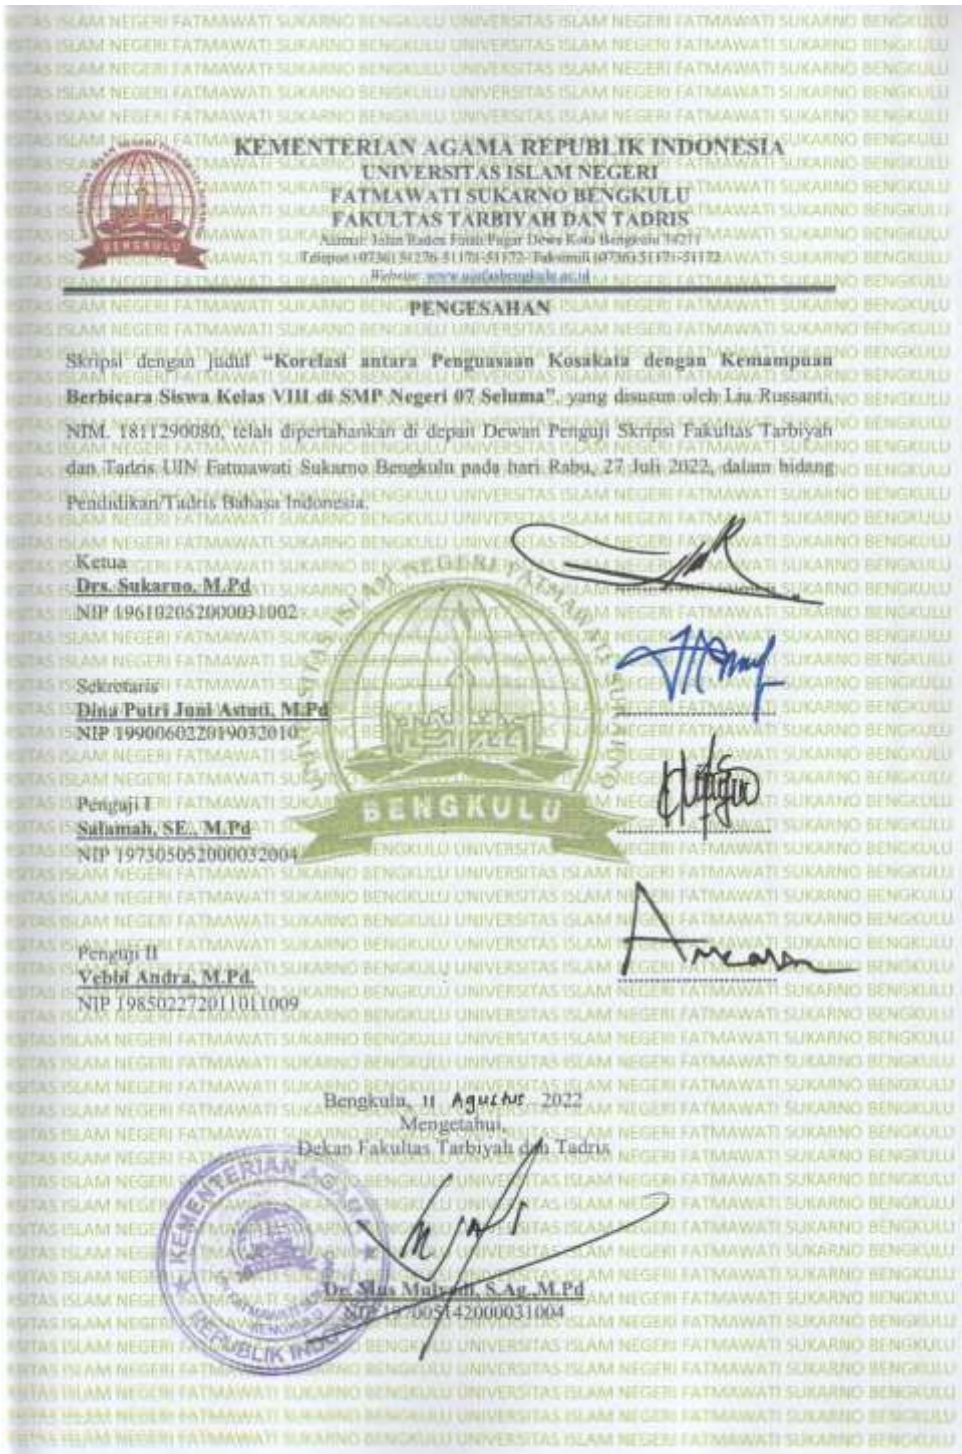 KEMENTERIAN AGAMA REPUBLIK INDONESIA
UNIVERSITAS ISLAM NEGERI
FATMAWATI SUKARNO BENGKULU
FAKULTAS TARBIYAH DAN TADRIS
Alamat: Jalan Raden Fatah Pagar Dewa Kota Bengkulu 38211
Telepon (0736) 51276-51171-51172- Faksimili (0736) 51171-51172
Website: www.uinfasbengkulu.ac.id
BENGKULU
PENGESAHAN
Skripsi dengan judul "Korelasi antara Penguasaan Kosakata dengan Kemampuan
Berbicara Siswa Kelas VIII di SMP Negeri 07 Seluma", yang disusun oleh Lia Russanti,
NIM. 1811290080, telah dipertahankan di depan Dewan Penguji Skripsi Fakultas Tarbiyah
dan Tadris UIN Fatmawati Sukarno Bengkulu pada hari Rabu, 27 Juli 2022, dalam bidang
Pendidikan/Tadris Bahasa Indonesia.
Ketua
Drs. Sukarno, M.Pd
NIP 196102052000031002
Sekretaris
Dina Putri Juni Astuti, M.Pd
NIP 199006022019032010
Penguji I
Salamah, SE., M.Pd
NIP 197305052000032004
BENGKULU
Penguji II
Vebbi Andra, M.Pd.
NIP 198502272011011009
Bengkulu, 11 Agustus 2022
Mengetahui,
Dekan Fakultas Tarbiyah dan Tadris
KEMENTERIAN AGAMA
REPUBLIK INDO
Dr. Mus Mulyadi, S.Ag.,M.Pd
NIP 197005142000031004